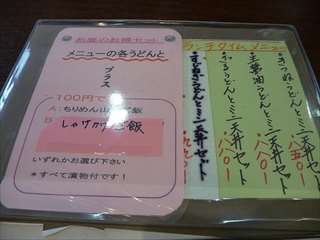 お昼のお得セット
メニューの各うどんと
プラス
100円で
A：ちりめん山
ご飯
B
しゃけ
ご飯
いずれかお選び下さい
＊すべて漬物付です！
ランチタイムメニュー
きつねうどんとミニ天丼セット 八五〇！
生醤油うどんとミニ天丼セット 八八〇！
わかめうどんとミニ天丼セット 八八〇！
うどんとミニ天丼セット